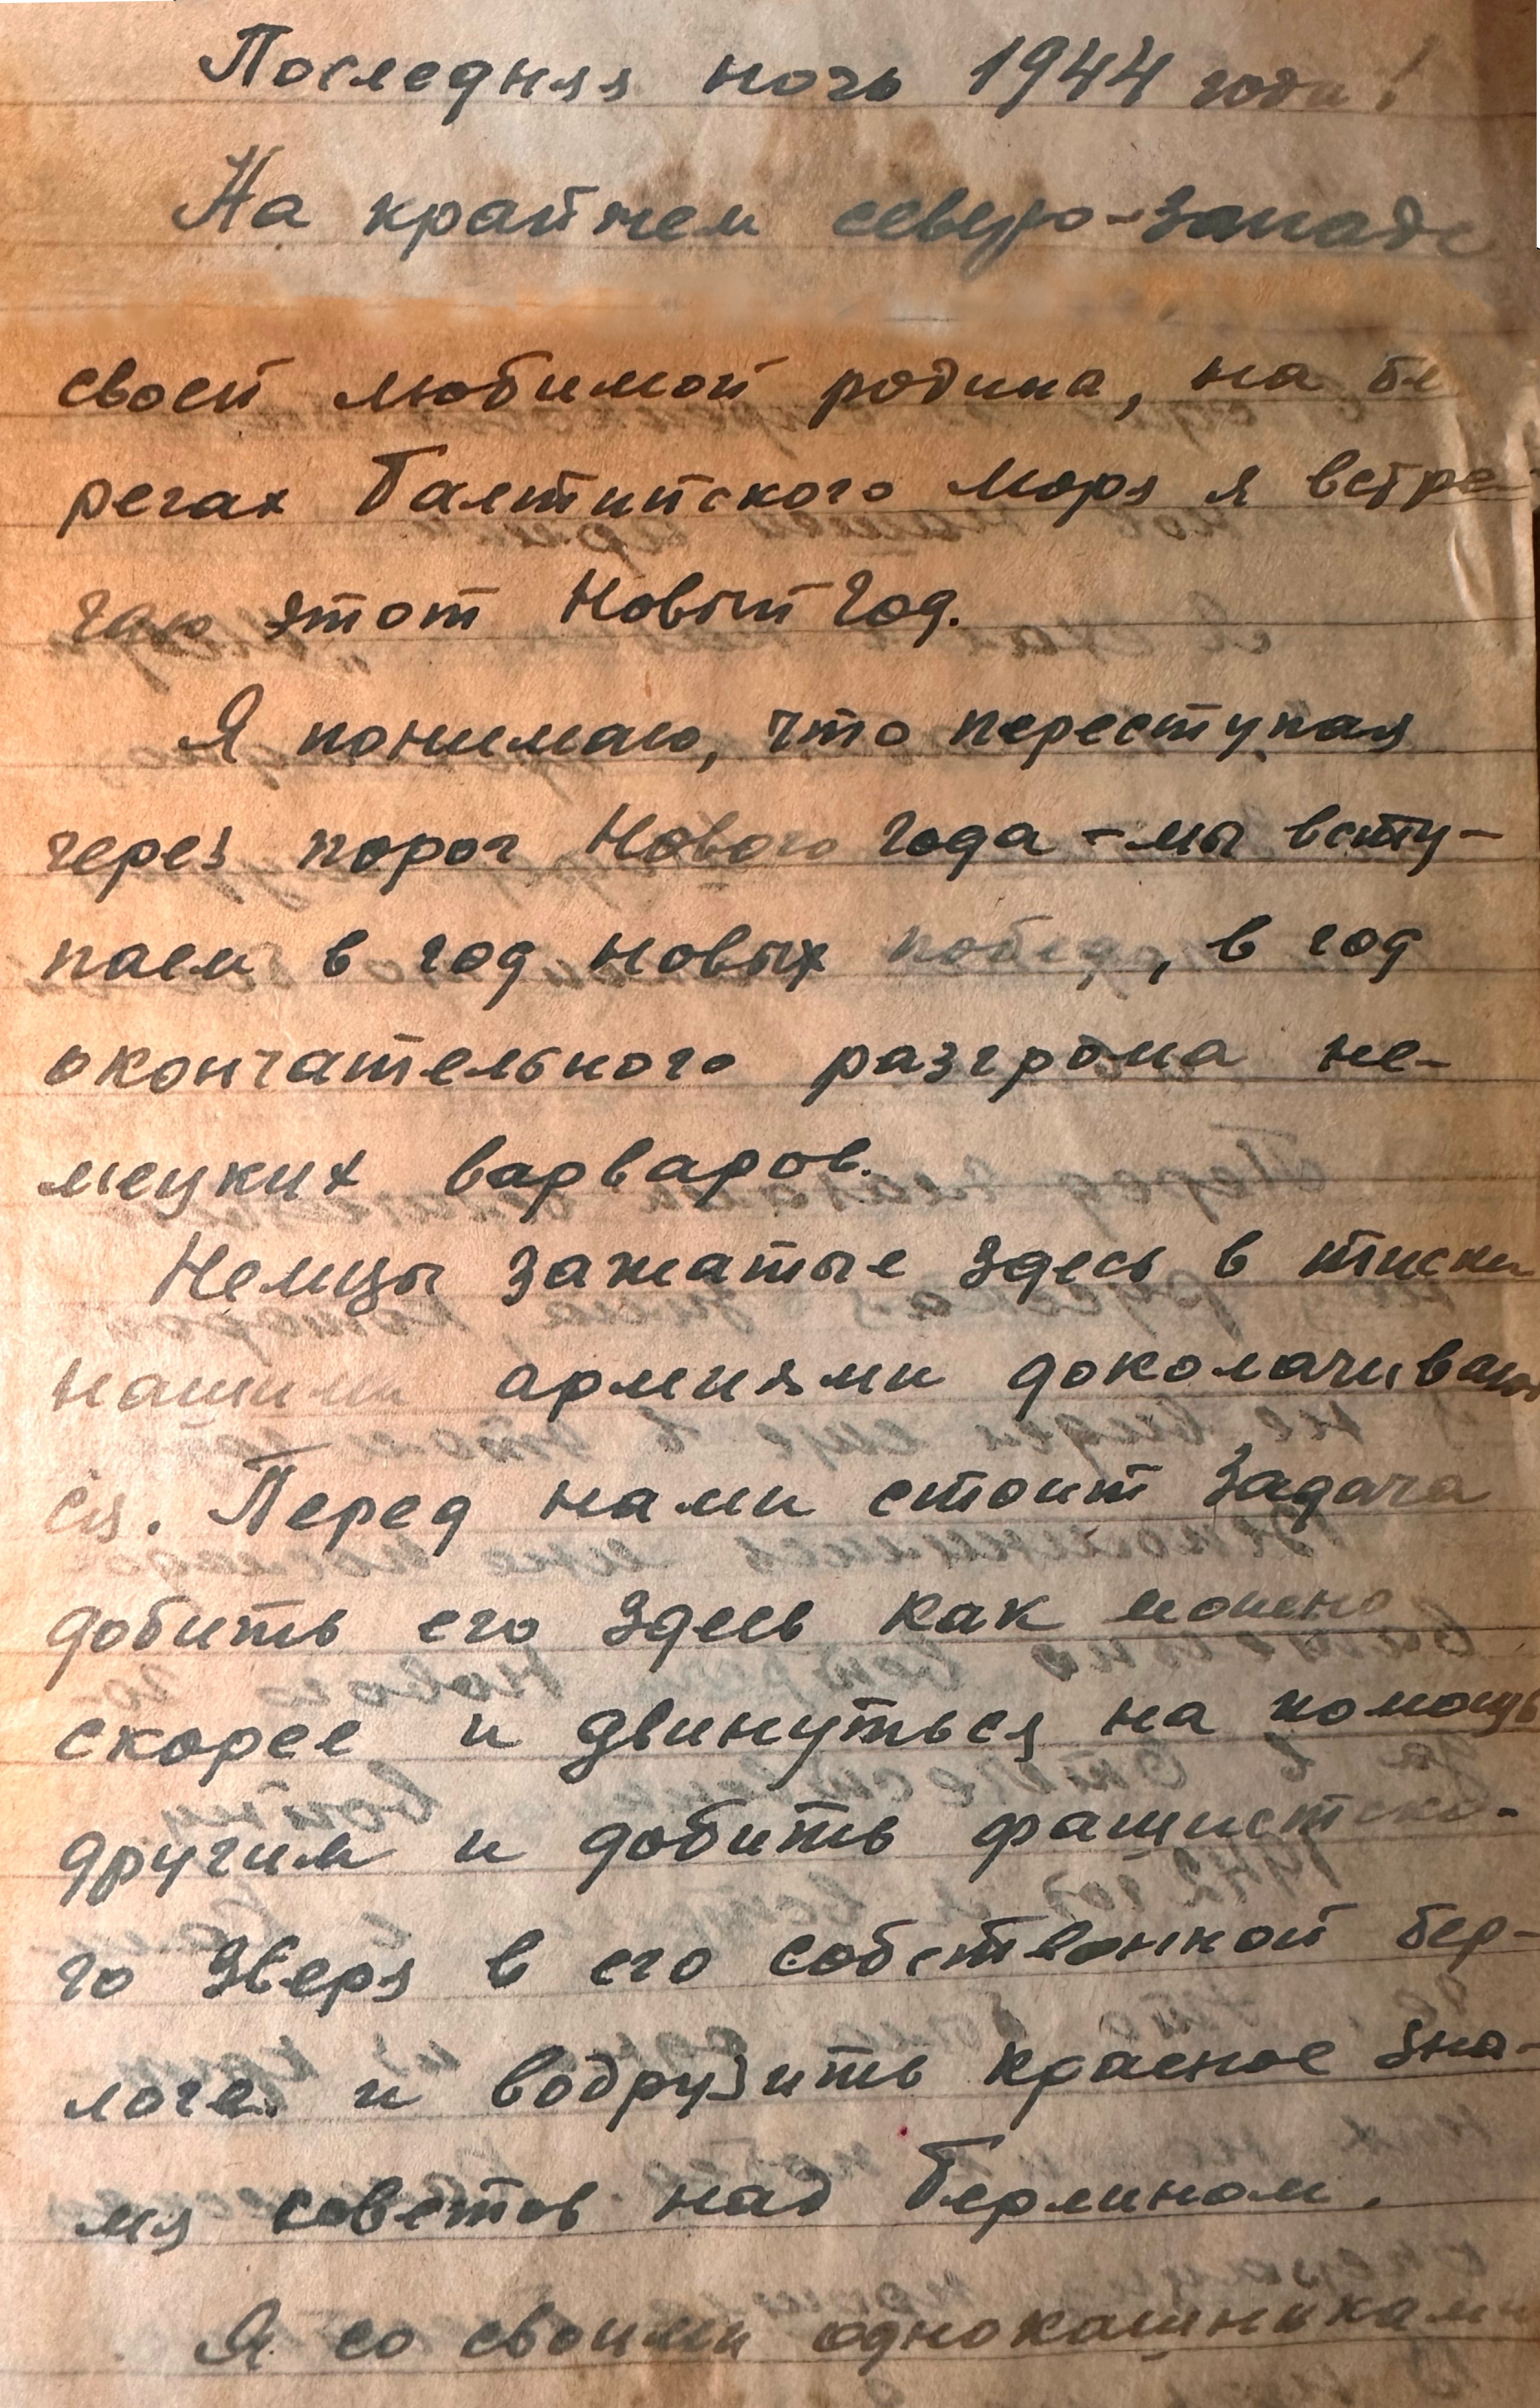 Последняя ночь 1944 года!
На крайнем северо-западе
своей любимой родина, на бе
регах Балтийского моря я встре
чаю этот Новый Год.
Я понимаю, что переступая
через порог Нового Года - мы всту-
паем в год новых побед, в год
окончательного разгрома не-
мецких варваров.
Немцы зажатые здесь в тиски
нашими армиями доколачивают
ся. Перед нами стоит задача
добить его здесь как можно
скорее и двинуться на помощь
другим и добить фашистско-
го зверя в его собственной бер-
логе и водрузить красное зна-
мя советов над Берлином.
Я со своими однокашниками